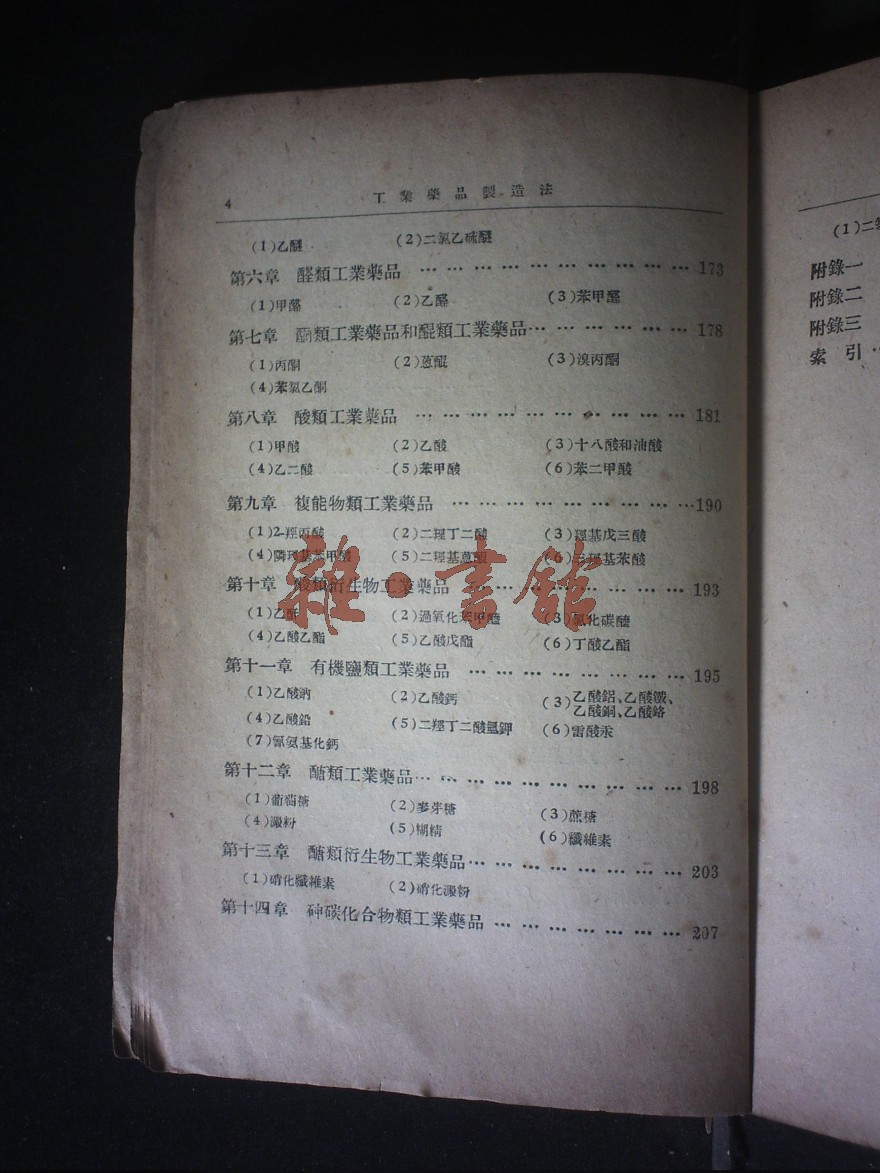 4 工業藥品製造法
(1)乙醚 (2)二氯乙硫醚
第六章 醛類工業藥品 … … … … … … … … … … 173
(1)甲醛 (2)乙醛 (3)苯甲醛
第七章 酮類工業藥品和醌類工業藥品… … … … … … 178
(1)丙酮 (2)蒽醌 (3)溴丙酮
(4)苯氯乙酮
第八章 酸類工業藥品 … … … … … … … … … … 181
(1)甲酸 (2)乙酸 (3)十八酸和油酸
(4)乙二酸 (5)苯甲酸 (6)苯二甲酸
第九章 複能物類工業藥品 … … … … … … … … …190
(1)2-羥丙酸 (2)二羥丁二酸 (3)羥基戊三酸
(4)隣羥基苯甲酸 (5)二羥基蒽醌 (6)三羥基苯酸
第十章 酸類衍生物工業藥品 … … … … … … … … 193
(1)乙酐 (2)過氧化苯甲醯 (3)氯化碳醯
(4)乙酸乙酯 (5)乙酸戊酯 (6)丁酸乙酯
第十一章 有機鹽類工業藥品 … … … … … … … … 195
(1)乙酸鈉 (2)乙酸鈣 (3)乙酸鋁、乙酸鐵、乙酸銅、乙酸鉻
(4)乙酸鉛 (5)二羥丁二酸氫鉀 (6)雷酸汞
(7)氰氨基化鈣
第十二章 醣類工業藥品… … … … … … … … … … 198
(1)葡萄糖 (2)麥芽糖 (3)蔗糖
(4)澱粉 (5)糊精 (6)纖維素
第十三章 醣類衍生物工業藥品… … … … … … … … 203
(1)硝化纖維素 (2)硝化澱粉
第十四章 砷碳化合物類工業藥品 … … … … … … … 207
雜·書館
附錄一
附錄二
附錄三
索引…